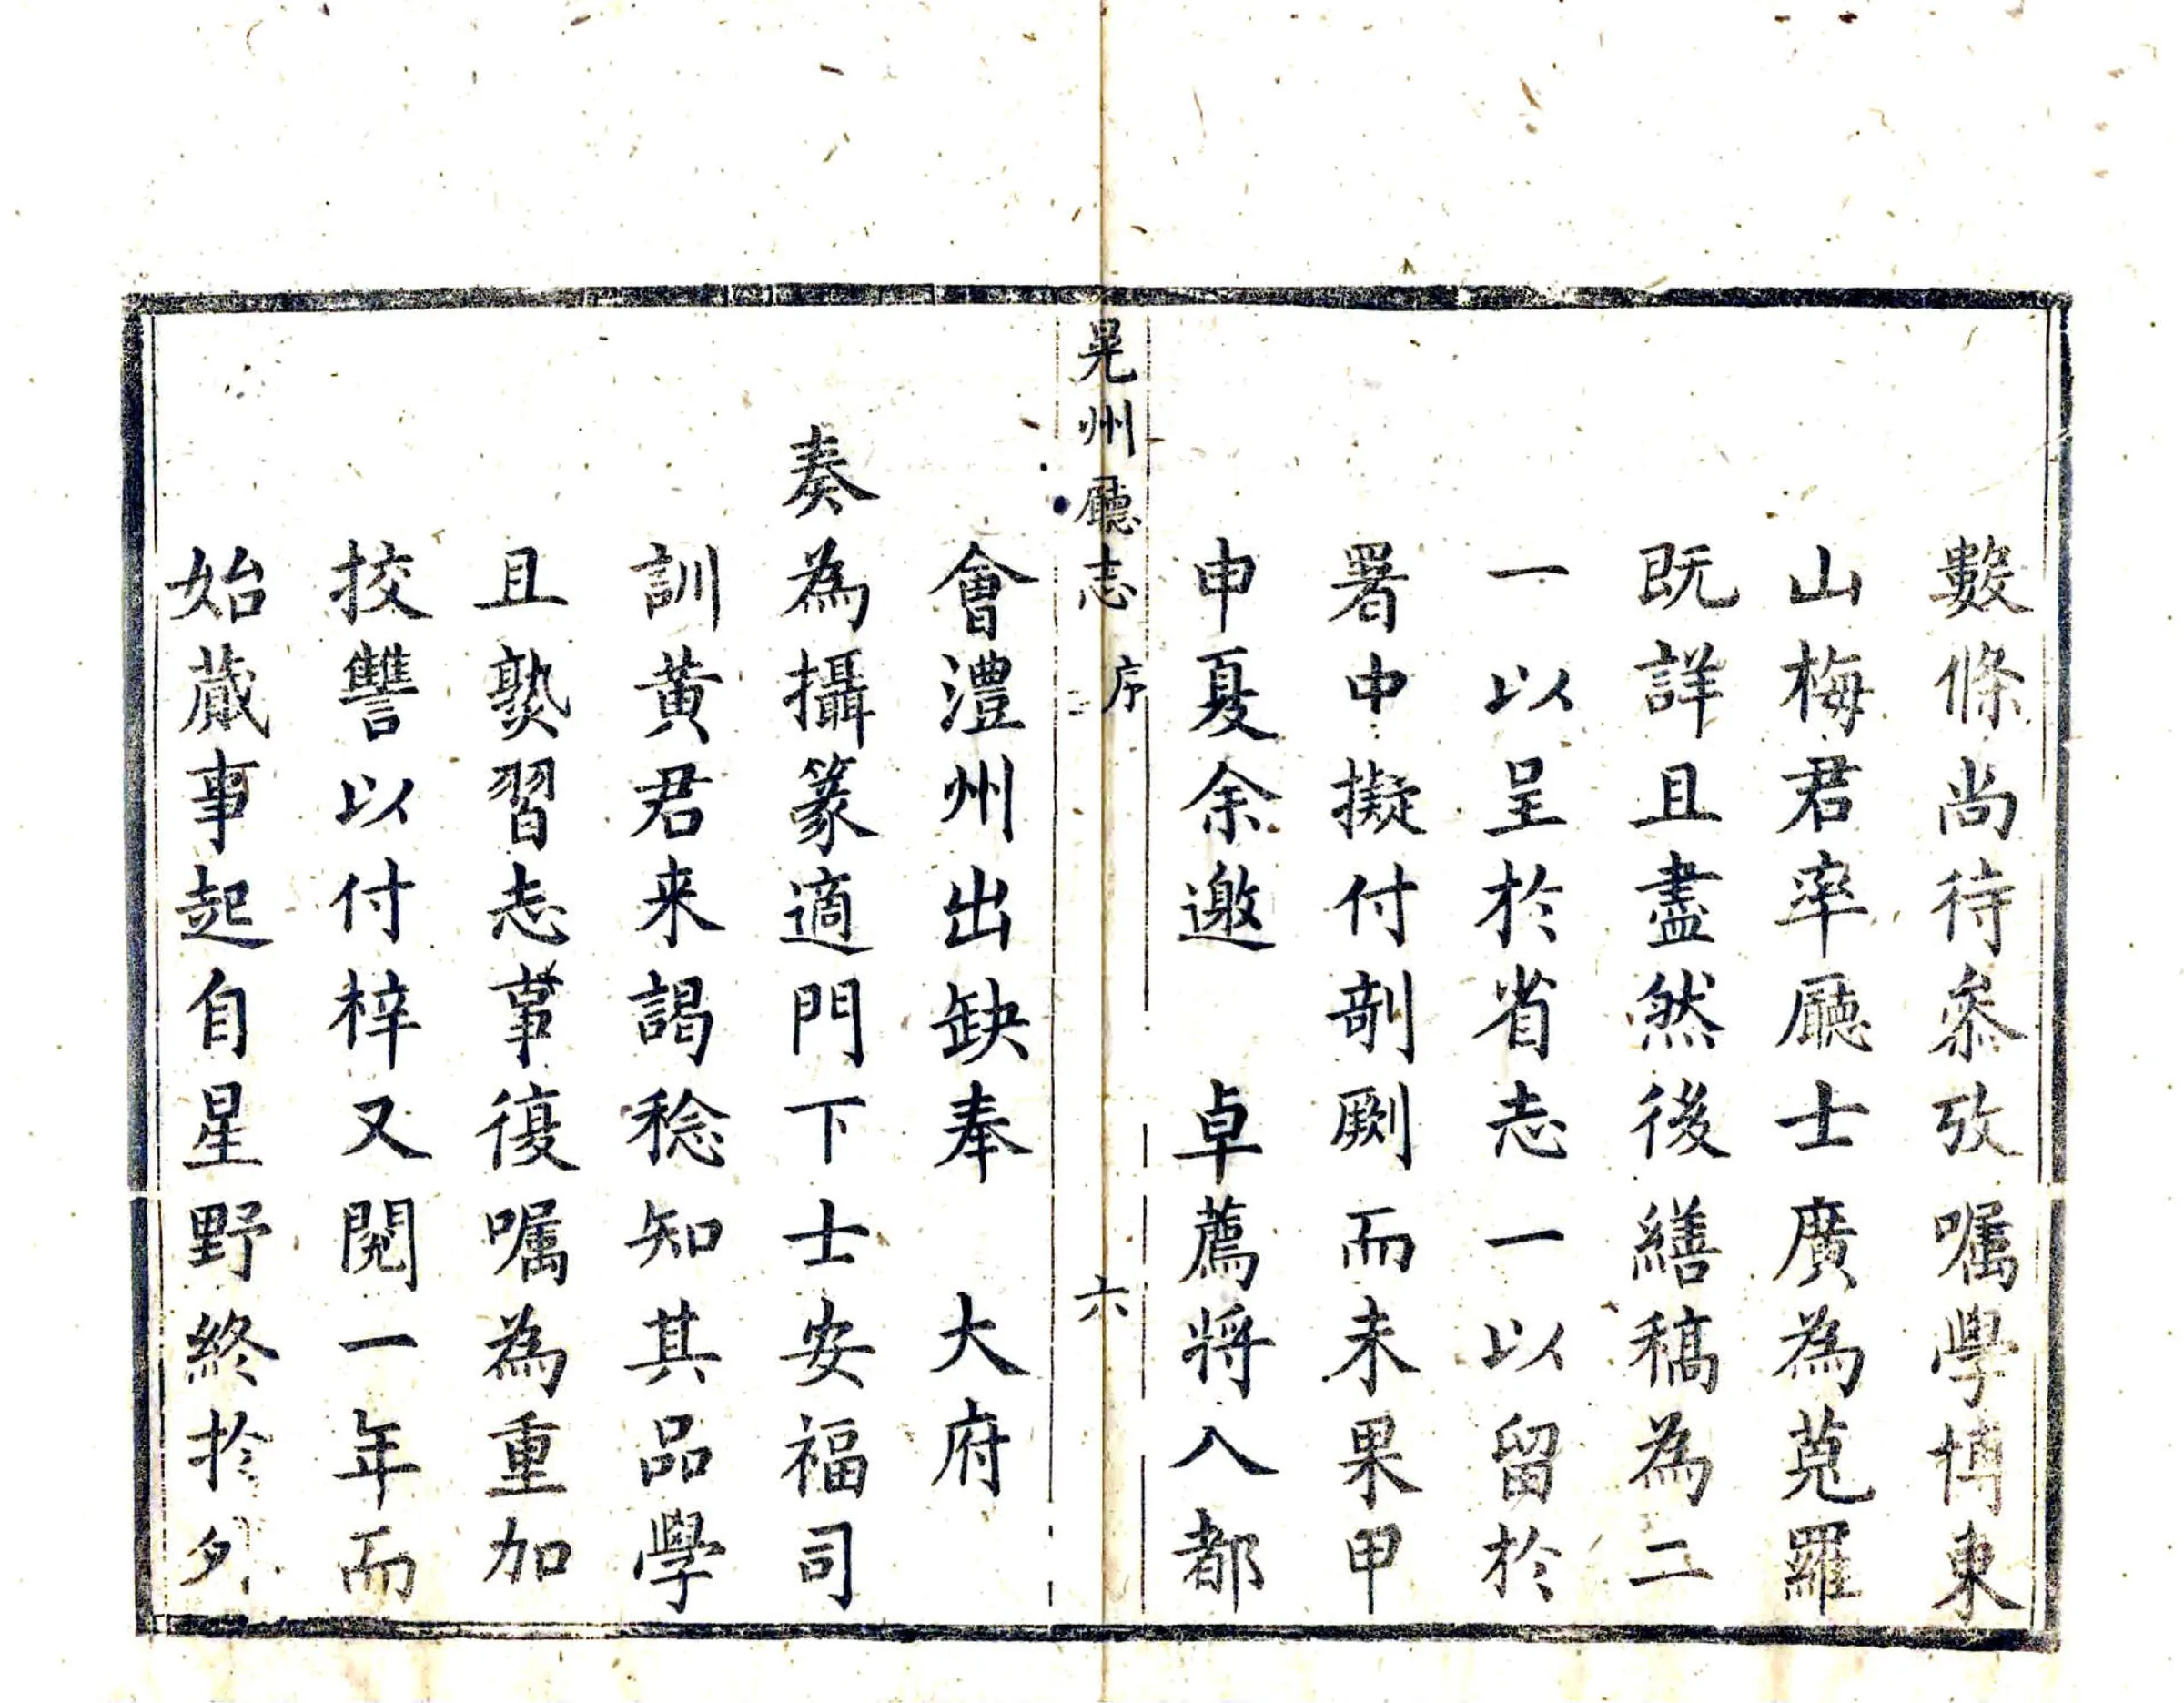 數條尚待叅攷囑學博東
山梅君率廳士廣為蒐羅
既詳且盡然後繕稿為二
一以呈於省志一以留於
署中擬付剞劂而未果甲
申夏余邀　卓薦將入都
晃州廳志　序　六
會澧州出缺奉　大府
奏為攝篆適門下士安福司
訓黃君来謁稔知其品學
且熟習志事復囑為重加
挍讐以付梓又閱一年而
始蕆事起自星野終於